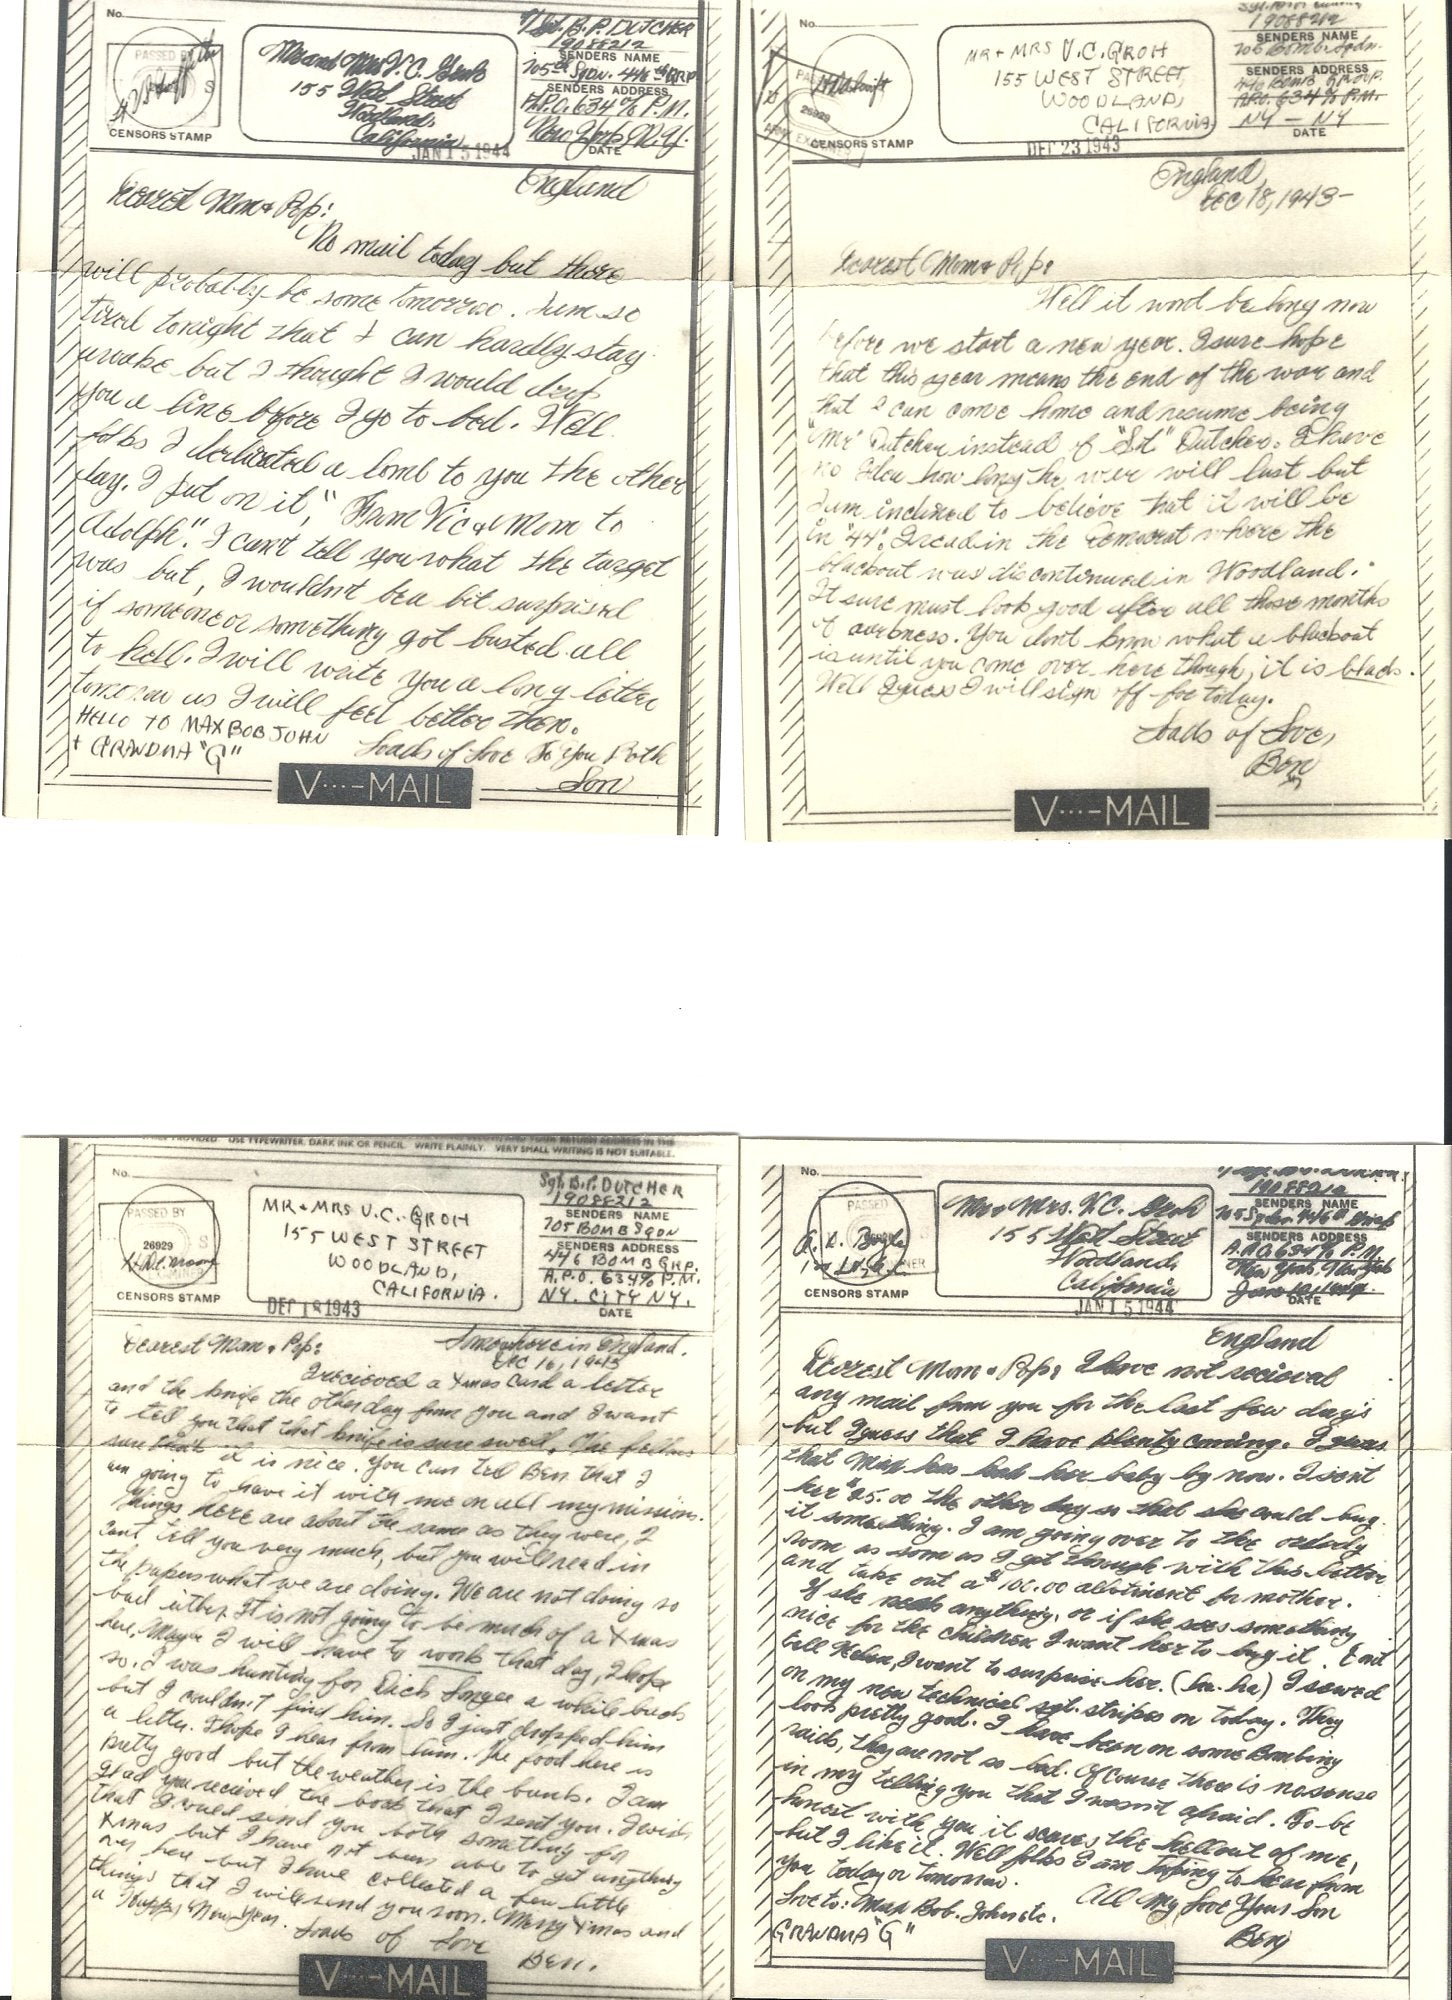 No.
PASSED BY
S
CENSORS STAMP
Mr and Mrs V.C. Groh
155 West Street
Woodland,
California
T/Sgt. B. P. DUTCHER
19088212
SENDERS NAME
705th Sqdn. 446th GRP
SENDERS ADDRESS
A.P.O. 634 % P.M.
New York, N.Y.
DATE
JAN 15 1944
England
Dearest Mom & Pop:
No mail today but there
will probably be some tomorrow. I am so
tired tonight that I can hardly stay
awake but I thought I would drop
you a line before I go to bed. Well
folks I dedicated a bomb to you the other
day. I put on it, "From Vic & Mom to
Adolph". I can't tell you what the target
was but, I wouldn't be a bit surprised
if someone or something got busted all
to hell. I will write you a long letter
tomorrow as I will feel better then.
HELLO TO MAX BOB JOHN
+ GRANDMA "G"
Loads of Love To You Both
Son
V···-MAIL
No.
26929
ARMY EXAMINER
CENSORS STAMP
MR + MRS V.C. GROH
155 WEST STREET,
WOODLAND,
CALIFORNIA
19088212
SENDERS NAME
706 Bomb. Sqdn.
SENDERS ADDRESS
446 BOMB GROUP.
A.P.O. 634 % P.M.
NY - NY
DATE
DEC 23 1943
England,
DEC 18, 1943-
Dearest Mom & Pop:
Well it wont be long now
before we start a new year. I sure hope
that this year means the end of the war and
that I can come home and resume being
"Mr" Dutcher instead of "Sgt" Dutcher. I have
no idea how long the war will last but
I am inclined to believe that it will be
in "44". I read in the Democrat where the
blackout was discontinued in Woodland.
It sure must look good after all those months
of darkness. You don't know what a blackout
is until you come over here though, it is black.
Well I guess I will sign off for today.
Loads of Love,
Ben
V···-MAIL
USE TYPEWRITER, DARK INK OR PENCIL. WRITE PLAINLY. VERY SMALL WRITING IS NOT SUITABLE.
No.
PASSED BY
26929
S
CENSORS STAMP
MR + MRS V.C. GROH
155 WEST STREET
WOODLAND,
CALIFORNIA.
Sgt. B.P. DUTCHER
19088212
SENDERS NAME
705 BOMB SQDN
SENDERS ADDRESS
446 BOMB GRP.
A.P.O. 634 % P.M.
NY. CITY NY.
DATE
DEC 1943
Dearest Mom & Pop:
Somewhere in England.
DEC 16, 1943
I recieved a Xmas card a letter
and the knife the other day from you and I want
to tell you that that knife is sure swell. The fellows
sure it is nice. You can tell Ben that I
am going to have it with me on all my missions.
Things here are about the same as they were, I
can't tell you very much, but you will read in
the papers what we are doing. We are not doing so
bad either. It is not going to be much of a Xmas
here, Maybe I will have to work that day, I hope
so. I was hunting for Dick a while back
but I couldn't find him. So I just dropped him
a letter. I hope I hear from him. The food here is
pretty good but the weather is the bunk. I am
glad you recieved the book that I sent you. I wish
that I could send you both something for
Xmas but I have not been able to get anything
over here but I have collected a few little
things that I will send you soon. Merry Xmas and
a Happy New Year.
Loads of Love
Ben.
V···-MAIL
No.
PASSED
CENSORS STAMP
Mr & Mrs. V.C. Groh
155 West Street
Woodland,
California
19088212
SENDERS NAME
705 Sqdn 446th Group
SENDERS ADDRESS
A.P.O. 634 % P.M.
New York, New York
DATE
JAN 15 1944
England
Dearest Mom & Pop: I have not recieved
any mail from you for the last few days
but I guess that I have plenty coming. I guess
that Max has had her baby by now. I sent
her $25.00 the other day so that she could buy
it something. I am going over to the orderly
room as soon as I get through with this letter
and take out a $100.00 allotment for mother.
If she needs anything, or if she sees something
nice for the children I want her to buy it. Don't
tell Helen, I want to surprise her. (ha. ha) I sewed
on my new technical sgt. stripes on today. They
look pretty good. I have been on some Bombing
raids, they are not so bad. Of course there is no sense
in my telling you that I wasn't afraid. To be
honest with you it scares the hell out of me,
but I like it. Well folks I am hoping to hear from
you today or tomorrow.
All My Love Your Son
Love to: Max Bob. John etc.
GRANDMA "G"
Ben
V···-MAIL